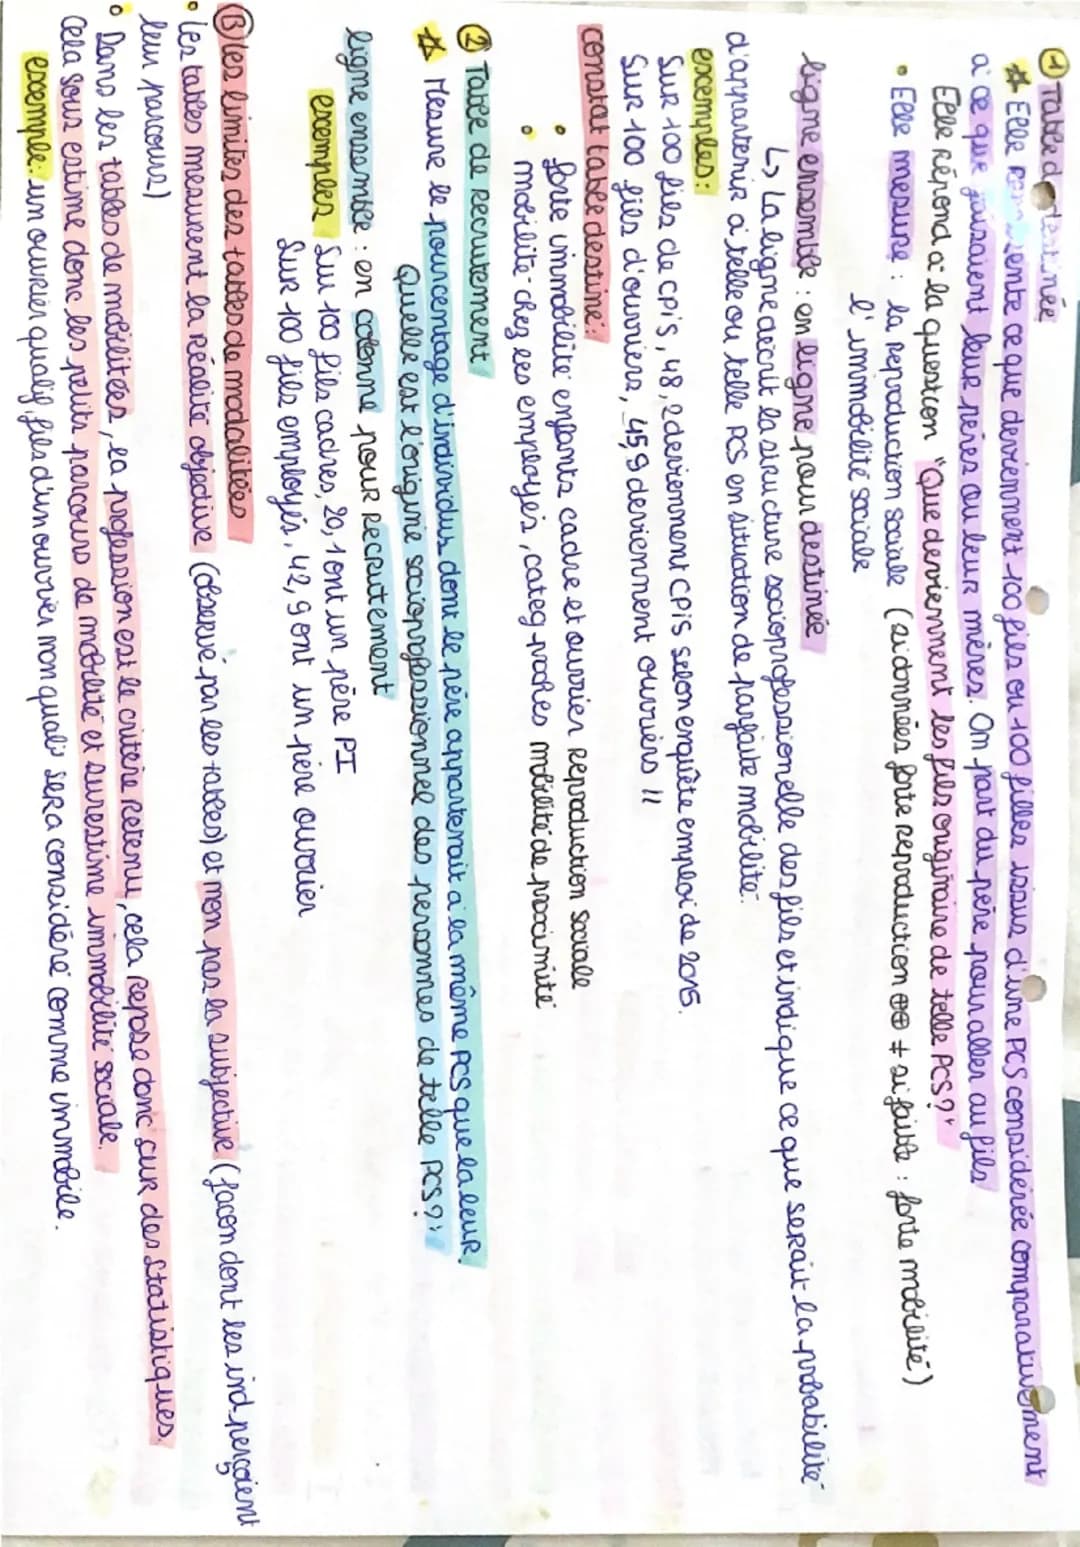 ① Table de destinée
* Elle représente ce que deviennent 100 fils ou 100 filles issus d'une PCS considérée comparativement
à ce que faisaient leur pères ou leur mères. On part du père pour aller au fils
Elle répond à la question "Que deviennent les fils originaire de telle PCS?"
• Elle mesure : la reproduction sociale (si données forte reproduction ⊕⊕ + si faible : forte mobilité)
l'immobilité sociale
ligne ensemble : en ligne pour destinée
↳ La ligne décrit la structure socioprofessionelle des fils et indique ce que serait la probabilité
d'appartenir à telle ou telle PCS en situation de parfaite mobilité.
exemples :
Sur 100 fils de cpis, 48,2 deviennent CPIS selon enquête emploi de 2015.
Sur 100 fils d'ouvriers, 45,9 deviennent ouvriers "
constat table destiné :
• forte immobilité enfants cadre et ouvrier reproduction sociale
• mobilité chez les employés, categ proches mobilité de proximité
② Table de recrutement
* Mesure le pourcentage d'individus dont le père appartenait à la même PCS que la leur.
Quelle est l'origine socioprofessionnel des personnes de telle PCS?"
ligne ensemble : en colonne pour recrutement
exemples / Su 100 fils cadres, 20,1 ont un père PI
Sur 100 fils employés, 42,9 ont un père ouvrier
Ⓑ les limites des tables de modalitées
• les tables mesurent la réalité objective (observé par les tables) et non pas la subjective (façon dont les ind perçoient
leur parcours)
• Dans les tables de mobilitées, la profession est le critère retenu, cela repose donc sur des statistiques.
Cela sous estime donc les petits parcours de mobilité et surestime immobilité sociale.
exemple : un ouvrier qualif fils d'un ouvrier non quali sera considéré comme immobile.